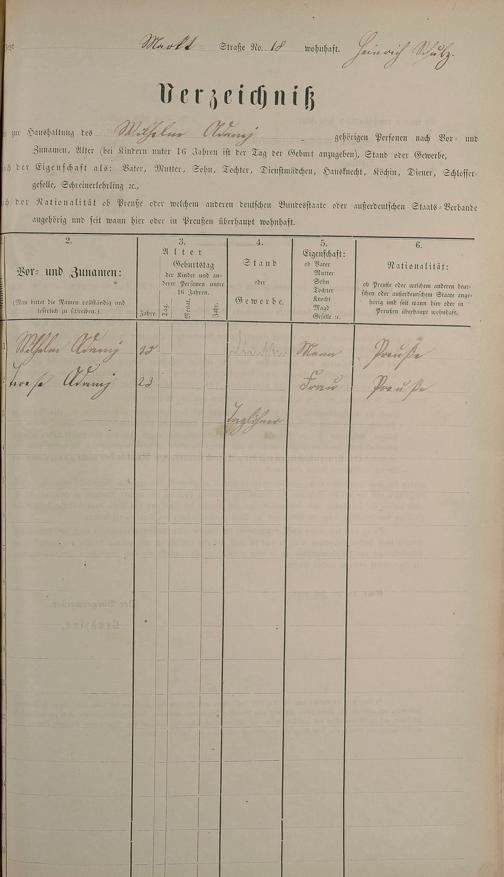 Markt Straße No. 18 wohnhaft. Heinrich Schulz.
Verzeichniß
zur Haushaltung des Wilhelm Adamy gehörigen Personen nach Vor- und
Zunamen, Alter (bei Kindern unter 16 Jahren ist der Tag der Geburt anzugeben), Stand oder Gewerbe,
der Eigenschaft als: Vater, Mutter, Sohn, Tochter, Dienstmädchen, Hausknecht, Köchin, Diener, Schlosser-
geselle, Schreinerlehrling ꝛc.,
der Nationalität ob Preuße oder welchem anderen deutschen Bundesstaate oder außerdeutschen Staats-Verbande
angehörig und seit wann hier oder in Preußen überhaupt wohnhaft.
2.
Vor- und Zunamen:
(Man bittet die Namen vollständig und
leserlich zu schreiben.)
3.
Alter
Geburtstag
der Kinder und an-
derer Personen unter
16 Jahren.
Jahre.
Tag.
Monat.
Jahr.
4.
Stand
oder
Gewerbe.
5.
Eigenschaft:
ob Vater
Mutter
Sohn
Tochter
Knecht
Magd
Geselle ꝛc.
6.
Nationalität:
ob Preuße oder welchem anderen deut-
schen oder außerdeutschen Staate ange-
hörig und seit wann hier oder in
Preußen überhaupt wohnhaft.
Wilhelm Adamy 25 Mann Preuße
Therese Adamy 23 Frau Preuße
Taglöhner